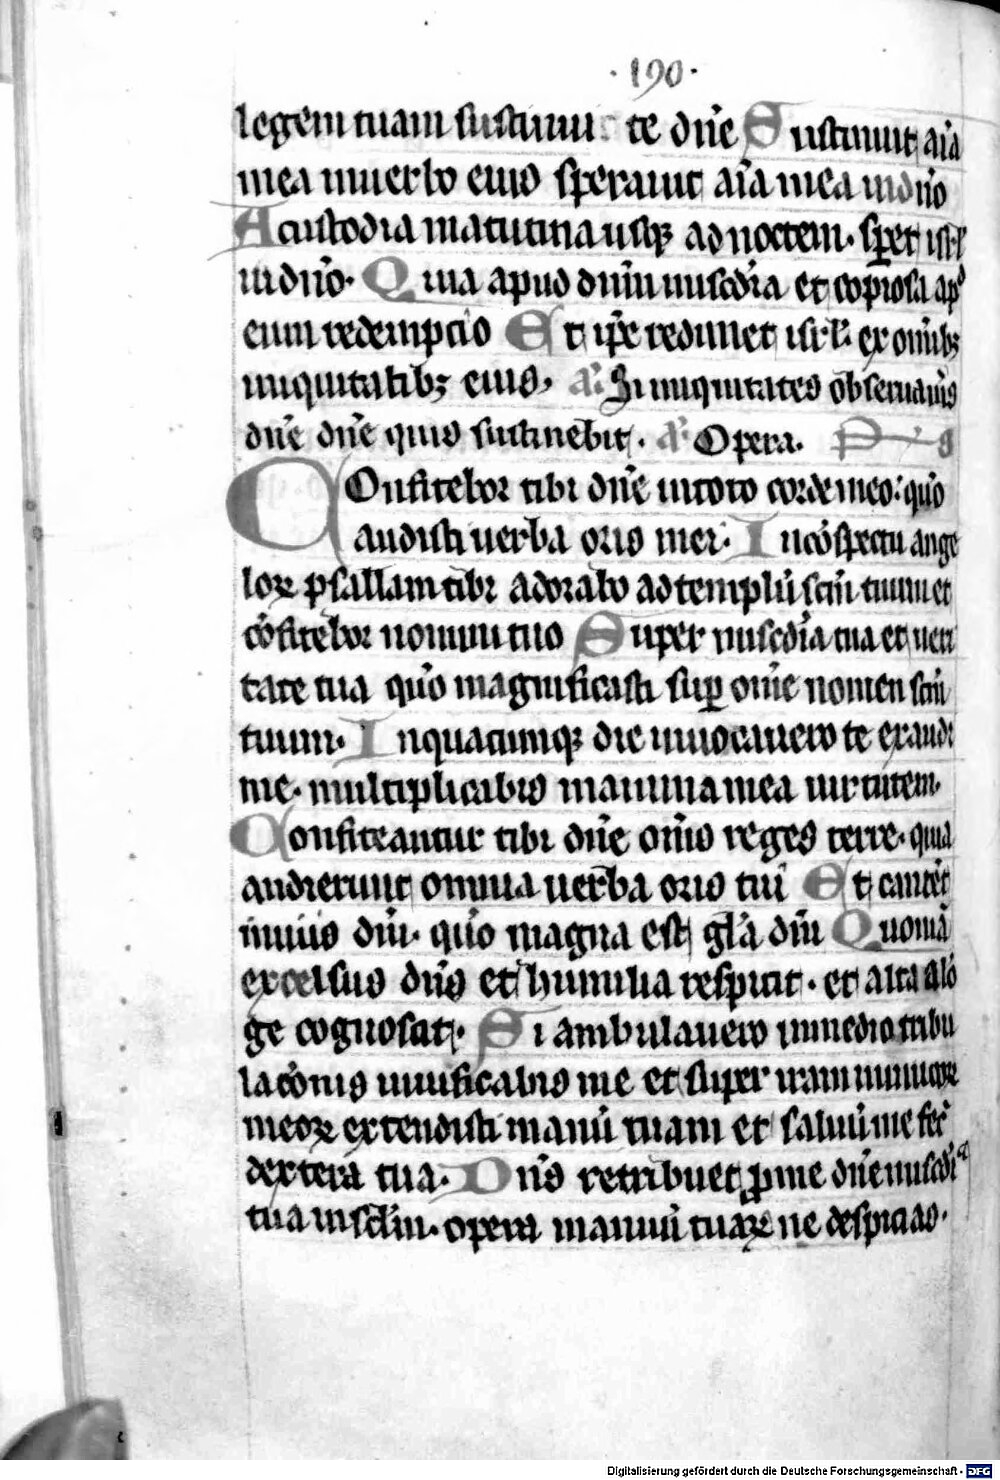 ·190·
legem tuam sustinui te dn̄e Sustinuit aīa
mea inuerbo eius sperauit aīa mea indn̄o
A custodia matutina usqꝫ ad noctem· sꝑet isrl
indn̄o· Quia apud dn̄m miscd̄ia et copiosa apᵈ
eum redempcio Et ip̄e redimet isrl· ex om̄ibꝫ
iniquitatibꝫ eius, a᷒ Si iniquitates obseruau̅is
dn̄e dn̄e quis sustinebit· a᷒ Opera. P̄s
Confitebor tibi dn̄e intoto corde meo: qūo
audisti uerba oris mei· In cōspectu ange
loꝝ psallam tibi adorabo ad templū scm̄ tuum et
cōfitebor nomini tuo Super miscd̄ia tua et ueri
tate tua qūo magnificasti suꝑ om̄e nomen scm̄
tuum· In quacumqꝫ die inuocauero te exaudi
me· multiplicabis in anima mea uirtutem·
Confiteantur tibi dn̄e om̄s reges terre· quia
audierunt omnia uerba oris tui Et cantēt
inuiis dn̄i· qūo magna est gl̄a dn̄i Quoniā
excelsus dn̄s et humilia respicit· et alta alō
ge cognoscit· Si ambulauero in medio tribu
lacōnis uiuificabis me et super iram inimicoꝝ
meoꝝ extendisti manū tuam et saluū me fec̄
dextera tua· Dn̄s retribuet ꝓ me dn̄e miscd̄iᵃ
tua in sclm̄· opera manuū tuaꝝ ne despicias·
Digitalisierung gefördert durch die Deutsche Forschungsgemeinschaft - DFG